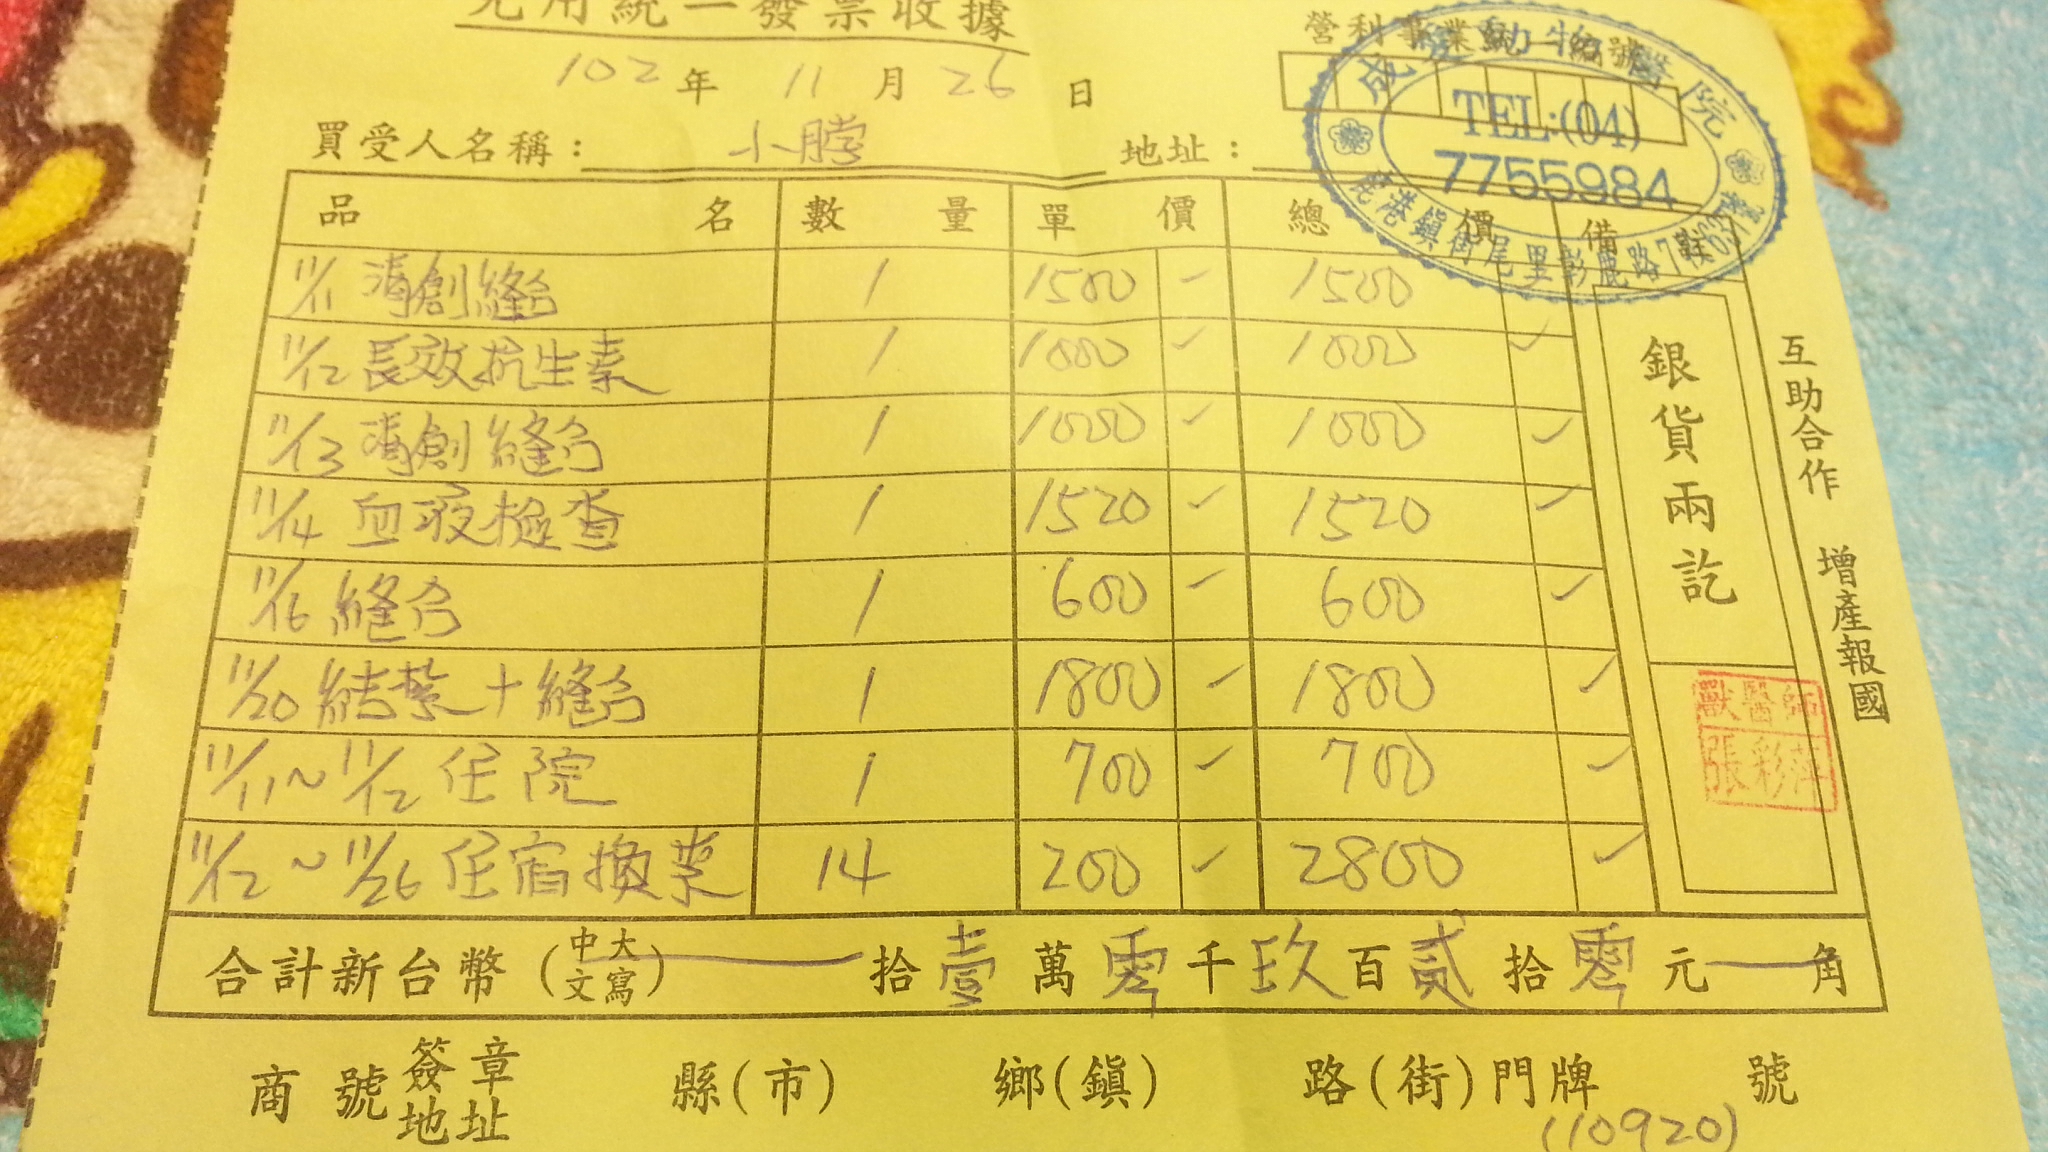 免用統一發票收據
營利事業統一編號
102年 11月 26日
動物醫院
TEL:(04)
7755984
鹿港鎮街尾里彰鹿路
買受人名稱： 小脖 地址：
品名 數量 單價 總價 備註
11/11 清創縫合 1 1500 1500
11/12 長效抗生素 1 1000 1000
11/13 清創縫合 1 1000 1000
11/14 血液檢查 1 1520 1520
11/16 縫合 1 600 600
11/20 結紮+縫合 1 1800 1800
11/11~11/12 住院 1 700 700
11/12~11/26 住宿換藥 14 200 2800
銀貨兩訖
獸醫師
張彩萍
互助合作 增產報國
合計新台幣(中文大寫) 拾壹萬零千玖百貳拾零元 角
商號簽章地址 縣(市) 鄉(鎮) 路(街)門牌 號
(10920)